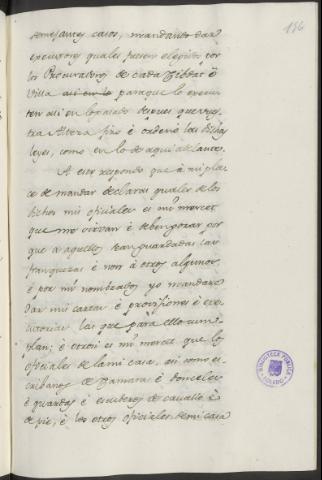 156
semejantes casos, mandando dar
executores quales fueren elegidos por
los Procuradores de cada Zibdat ò
Villa para que lo execu
ten asi en lo pasado despues que vues
tra Alteza fizo è ordenò las dichas
leyes, como en lo de aqui adelante.
A esto respondo que à mi pla
ce de mandar declarar quales de los
dichos mis oficiales es mi merced
que me sirvan è deben gozar por
que a aquellos sean guardadas las
franquezas è non à otros algunos
è por mi nombrados yo mandare
dar mis cartas è provisiones è exe
cutorias las que para ello cum
plan; è otrosi es mi merced que los
oficiales de la mi casa, asi como es
cribanos de Camara è donceles
è guardas è escuderos de cavallo è
de pie, è los otros oficiales de mi casa
BIBLIOTECA PUBLICA
TOLEDO